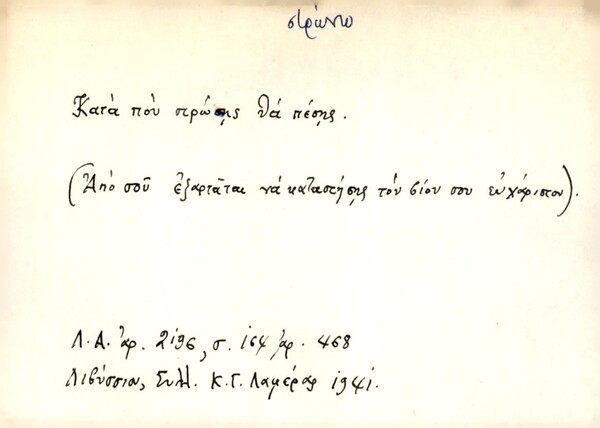 στρώνω
Κατὰ ποὺ στρώσῃς θὰ πέσῃς.
(Ἀπὸ σοῦ ἐξαρτᾶται νὰ καταστήσῃς τὸν βίον σου εὐχάριστον).
Λ.Α. ἀρ. 2196, σ. 154 ἀρ. 468
Λιβύσσιον, Συλλ. Κ.Γ. Λαμέρας 1941.